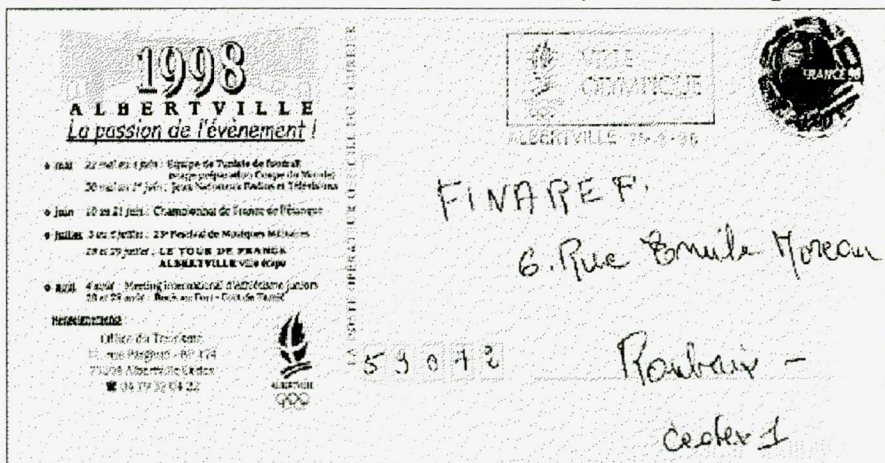 1998
ALBERTVILLE
La passion de l'évènement !
mai 22 mai au 4 juin : Equipe de Tunisie de football
étape préparation Coupe du Monde
30 mai au 1er juin : Jeux Nationaux Radios et Télévisions
juin 10 au 21 juin : Championnat de France de Pétanque
juillet 3 au 5 juillet : 23e Festival de Musiques Militaires
28 et 29 juillet : LE TOUR DE FRANCE
ALBERTVILLE ville étape
août 4 août : Meeting international d'athlétisme juniors
28 et 29 août : Rock au Fort - Fort de Tamié
Office du Tourisme
Albertville Cedex
04 79 32 04 22
ALBERTVILLE
LA POSTE OPÉRATEUR OFFICIEL DU COURRIER
VILLE
OLYMPIQUE
ALBERTVILLE
FRANCE 98
FINAREF.
6. Rue Emile Moreau
59072
Roubaix -
Cedex 1